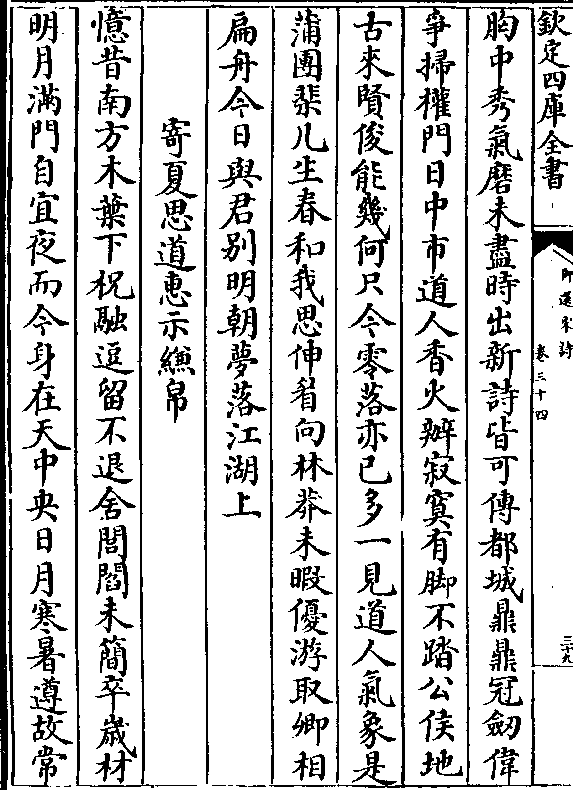 欽定四庫全書
御選宋詩
卷三十四
三十九
胸中秀氣磨未盡時出新詩皆可傳都城鼎鼎冠劒偉
爭掃權門日中市道人香火辦寂寞有脚不踏公侯地
古來賢俊能幾何只今零落亦已多一見道人氣象是
蒲團棐几生春和我思伸眉向林莽未暇優游取卿相
扁舟今日與君别明朝夢落江湖上
寄夏思道惠示繐帛
憶昔南方木葉下祝融逗留不退舍閭閻未簡卒歲材
明月滿門自宜夜而今身在天中央日月寒暑遵故常